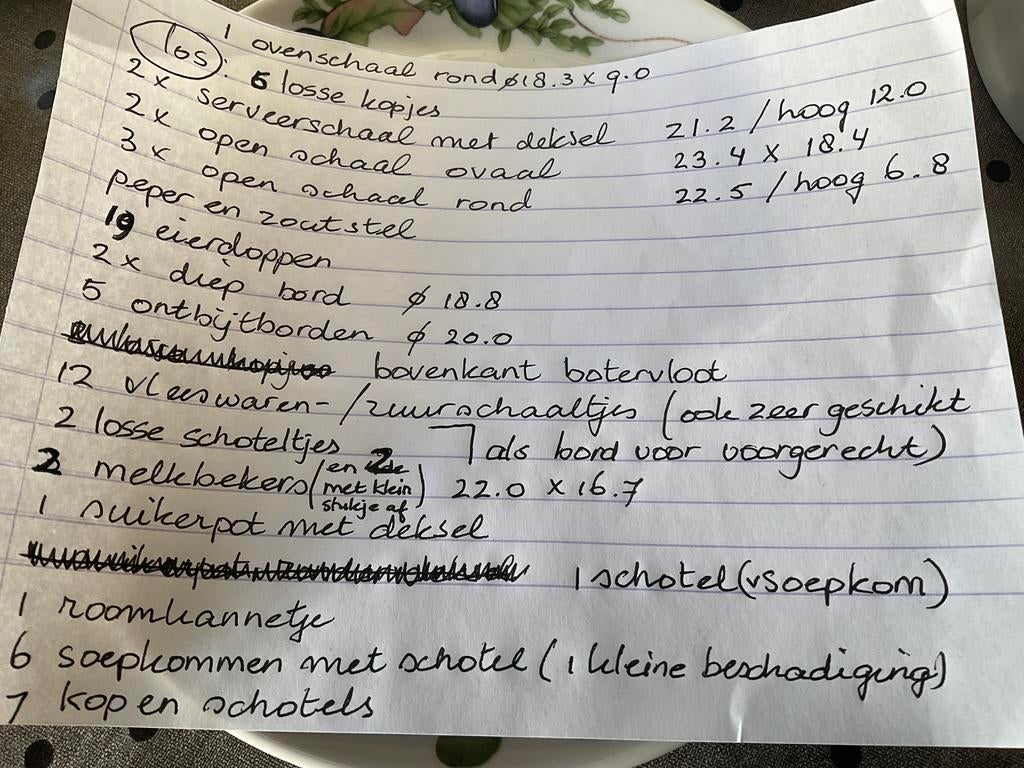 1 ovenschaal rond ϕ18.3 x 9.0
los: 6 losse kopjes
2x serveerschaal met deksel 21.2 / hoog 12.0
2x open schaal ovaal 23.4 x 18.4
3x open schaal rond 22.5 / hoog 6.8
peper en zoutstel
19 eierdoppen
2x diep bord ϕ 18.8
5 ontbijtborden ϕ 20.0
bovenkant botervloot
12 vleeswaren-/zuurschaaltjes (ook zeer geschikt
als bord voor voorgerecht)
2 losse schoteltjes
2 melkbekers (en 2 met klein stukje af) 22.0 x 16.7
1 suikerpot met deksel
1 schotel (v soepkom)
1 roomkannetje
6 soepkommen met schotel (1 kleine beschadiging)
7 kop en schotels